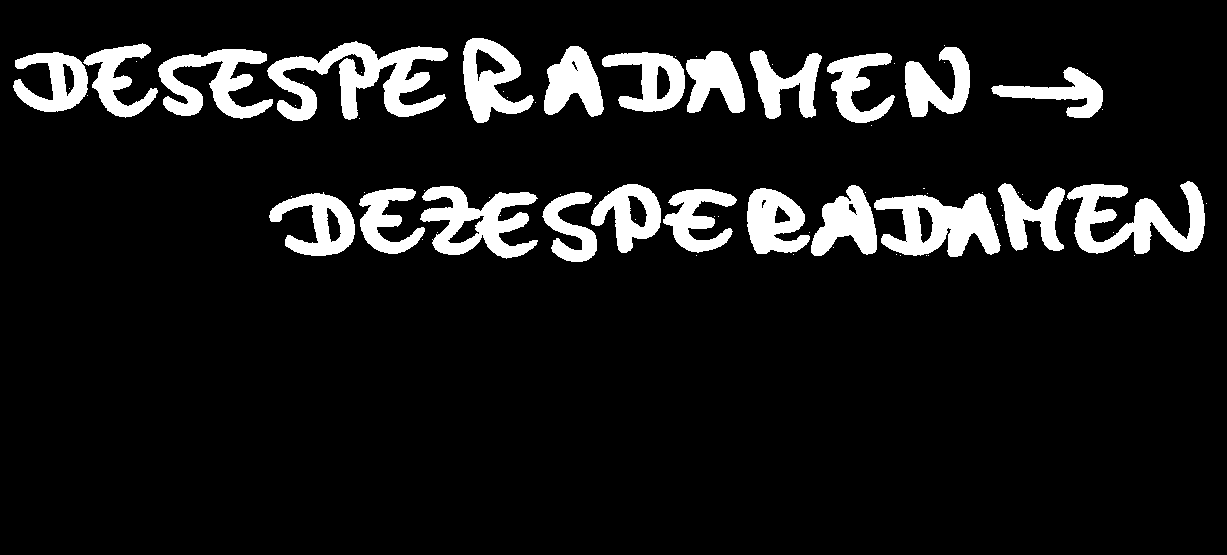 DESESPERADAMEN →
DEZESPERADAMEN